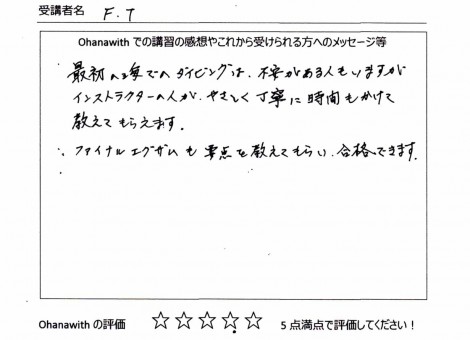 受講者名 F.T
Ohanawith での講習の感想やこれから受けられる方へのメッセージ等
最初の海でのダイビングは、不安がある人もいますが
インストラクターの人が、やさしく丁寧に時間もかけて
教えてもらえます。
・ファイナルエグザムも要点を教えてもらい、合格できます。
Ohanawith の評価 ☆☆☆☆☆ 5点満点で評価してください！